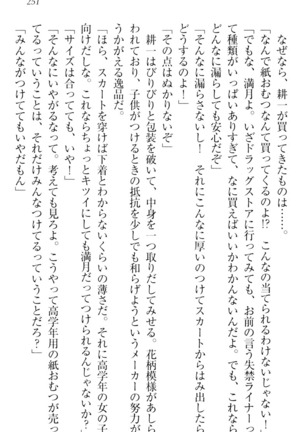 251
なぜなら、耕一が買ってきたものは……。
「なんで紙おむつなんて買ってくるのよ!? こんなの当てられるわけないじゃない!
「でもな、満月よ。いざドラッグストアに行ってみても、お前の言う失禁ライナーっ
て種類がいっぱいありすぎて、なに買えばいいかわかんないんだよ。でもっ
こんなに漏らしても安心だぞ」
「こんなに漏らさない! それにこんなに厚いのつけてスカートからはみ出した
どうするのよ!」
「その点はぬかりないぞ」
耕一はびりびりと包装を破いて、中身を一つ取りだしてみせる。花柄模様があしら
われており、子供がつけるときの抵抗を少しでも和らげようというメーカーの努力が
うかがえる逸品だ。
「ほら、スカートを穿けば下着とわからないくらいの薄さだ。それに高学年の女の子
向けだしな。これならちょっとキツイにしても満月だってつけられるんじゃないか?
「サイズは合ってても、いや!」
「そんなにいやがるなって。考えても見ろよ。こうやって高学年用の紙おむつが売っ
てるっていうことは、それだけみんなつけてるっていうことだろ?」
「みんながつけててもいやだもん」